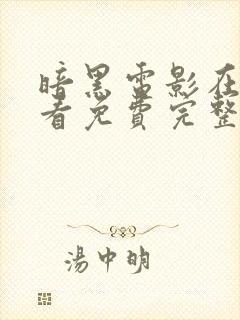 暗黑雷影在
看免费完整
湯中明